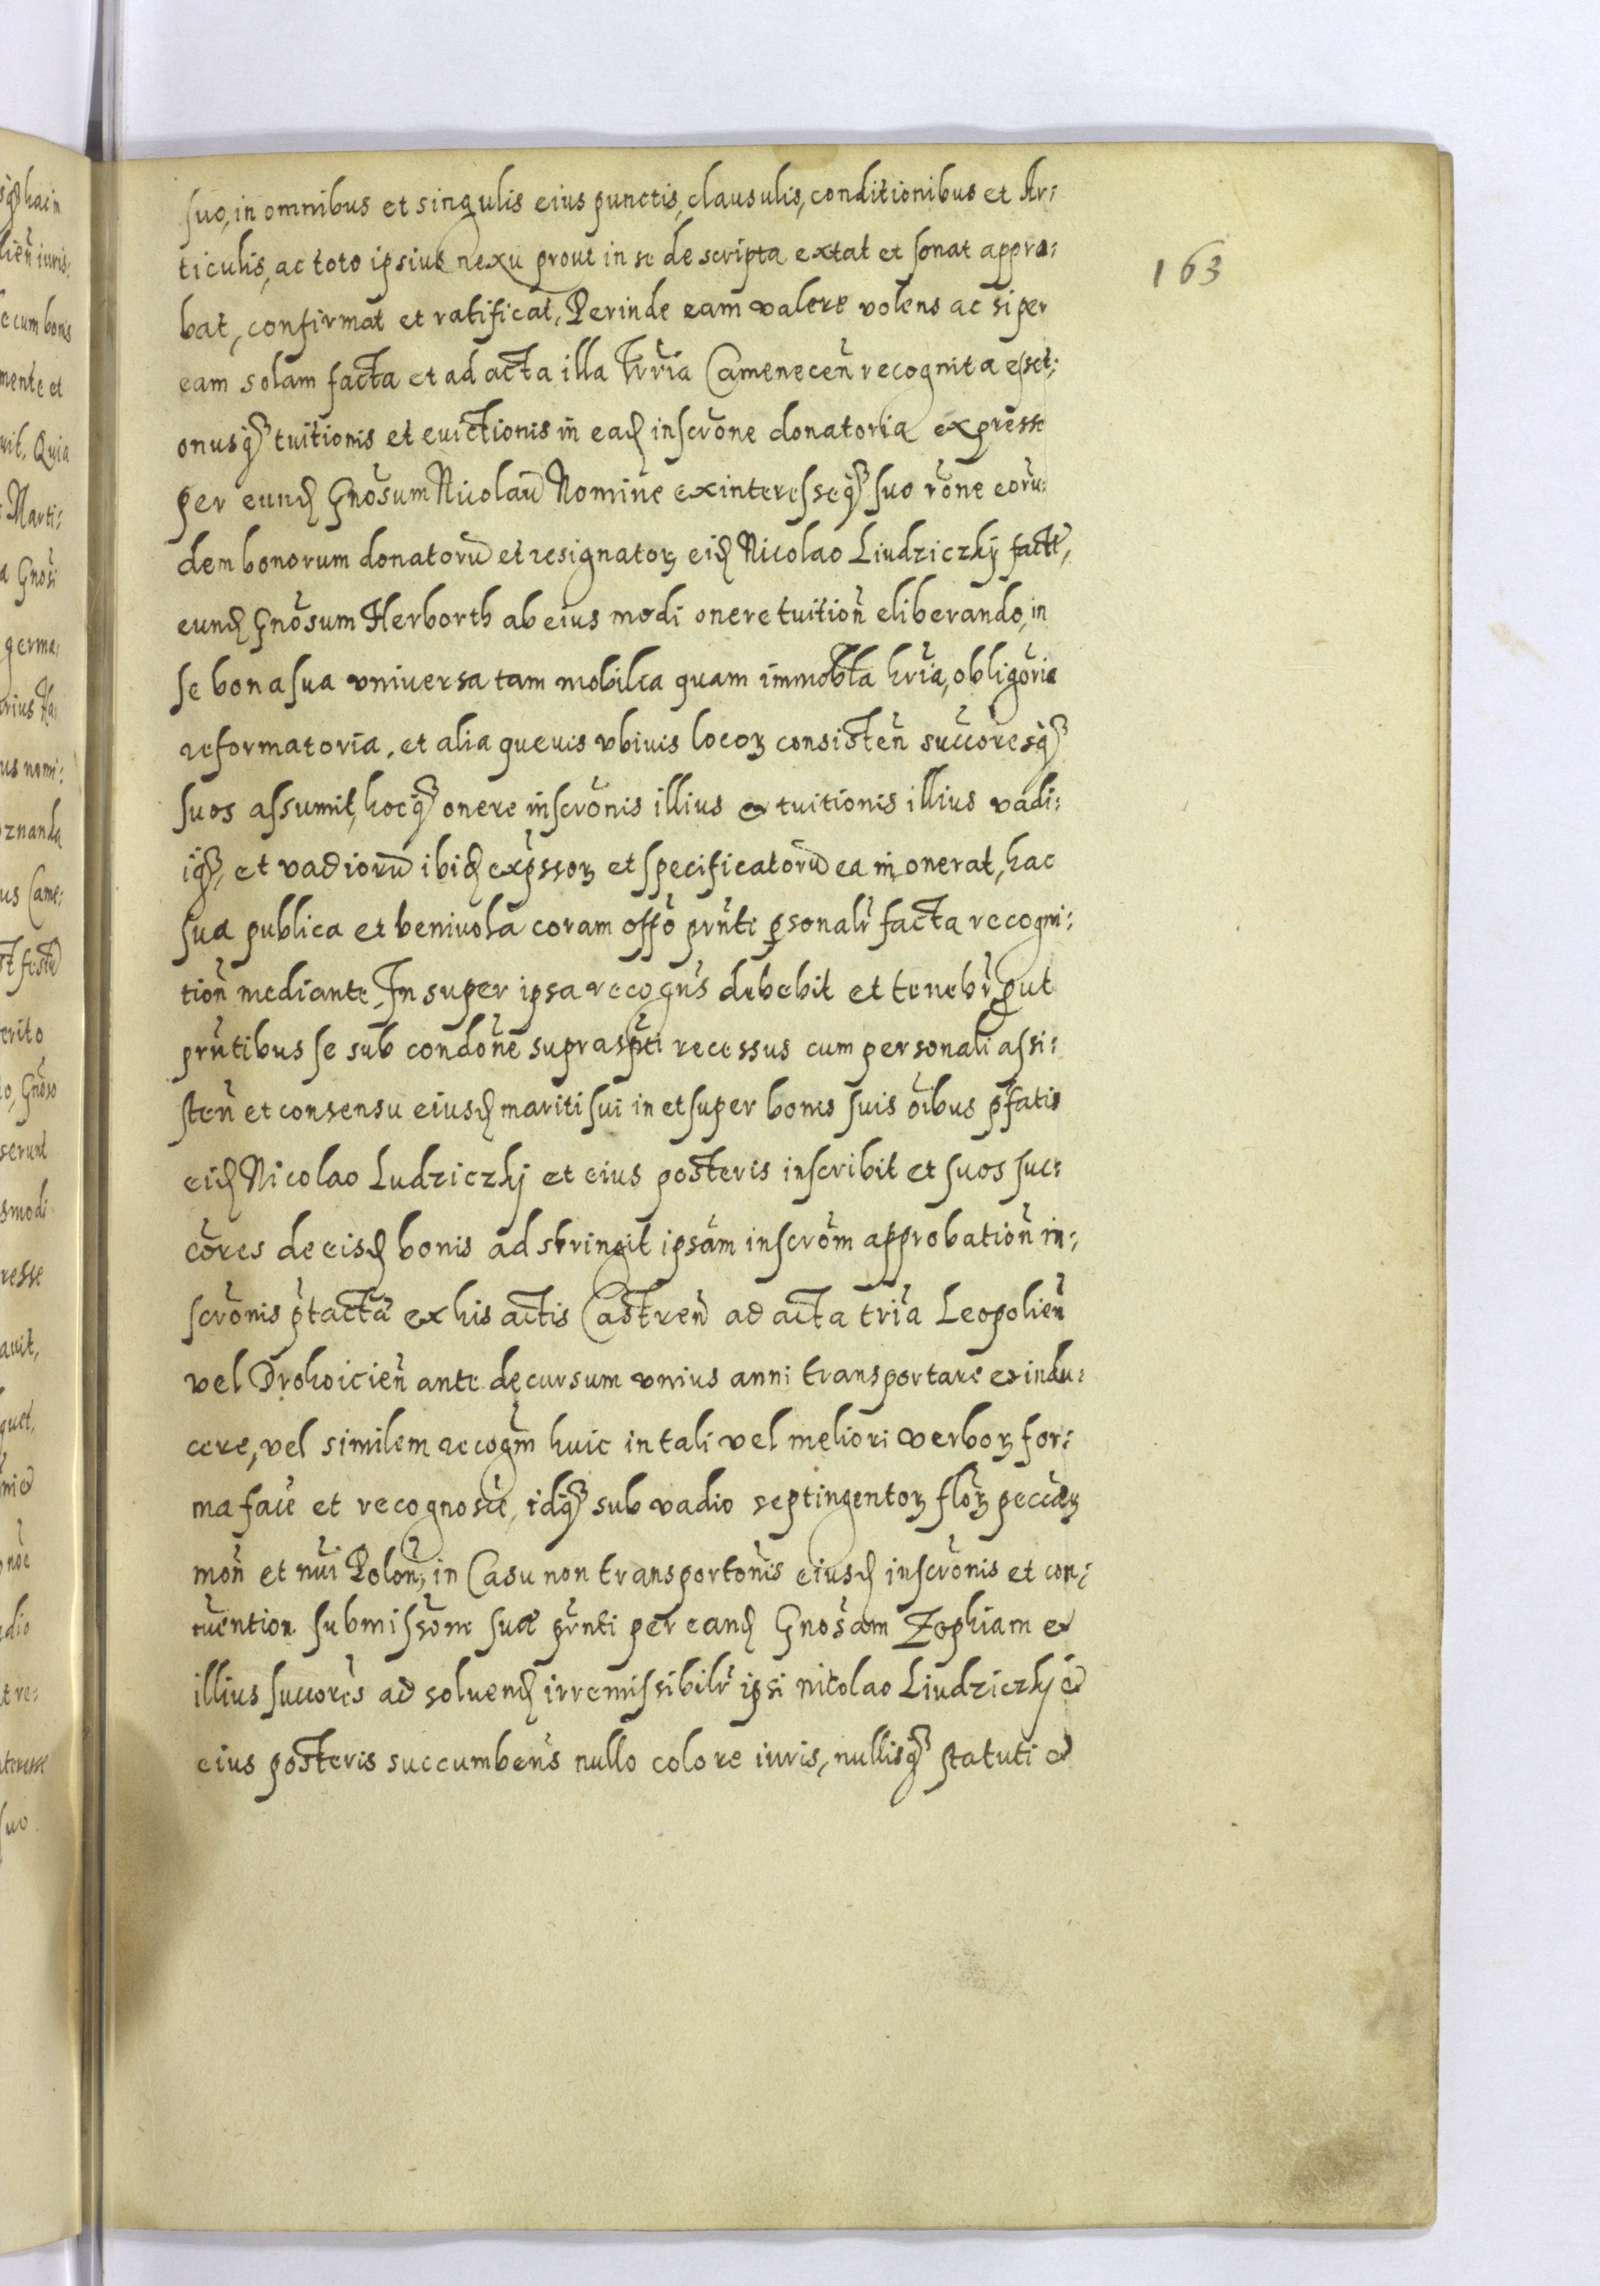 suo, in omnibus et singulis eius punctis, clausulis, conditionibus et Ar:
ticulis, ac toto ipsius nexu prout in se de scripta extat et sonat appro:
bat, confirmat et ratificat, Perinde eam valere volens ac si per
eam solam facta et ad acta illa Trria Camenecen̄ recognita esset;
onusq3 tuitionis et euictionis in ead inscrone donatoria expresse
per eund Gnosum Nicolaū Nomine ex interesseq3 suo rone eoru:
dem bonorum donatorū et resignatorꝝ eid Nicolao Liudziczkÿ facte,
eund Gnosum Herborth ab eius modi onere tuition̄ eliberando, in
se bona sua vniuersa tam mobilia quam immobīla hria, obligoria
reformatoria, et alia queuis vbiuis locorꝝ consisten̄ succoresq3
suos assumit, hocq3 onere inscronis illius et tuitionis illius vadi:
iq3, et vadiorū ibid expssorꝝ et specificatorū ea in onerat, hac
sua publica et beniuola coram offo prnti ꝑsonalr facta recogni:
tion̄ mediante, In super ipsa recogns debebit et tenebr ꝓut
prntibus se sub condone supraspti recessus cum personali assi:
sten̄ et consensu eiusd mariti sui in et super bonis suis oibus pfatis
eid Nicolao Ludziczkj et eius posteris inscribit et suos suc:
cores de eisd bonis ad stringit ipsam inscrom approbation̄ in:,
scronis ptacta ex his actis Castren̄ ad acta tria Leopolien̄
vel Drohoicien̄ ante decursum vnius anni transportare et indu:
cere, vel similem recogm huic in tali vel meliori verborꝝ for:
ma face et recognosce, idq3 sub vadio septingentorꝝ florꝝ peccarꝝ
mon̄ et nui Polon̄, in Casu non transportonis eiusd inscronis et con:
uention submissone sua prnti per eand Gnosam Zophiam et
illius succores ad soluend irremissibilr ipsi nicolao Liudziczkj et
eius posteris succumbens nullo colore iuris, nullisq3 statuti et
163